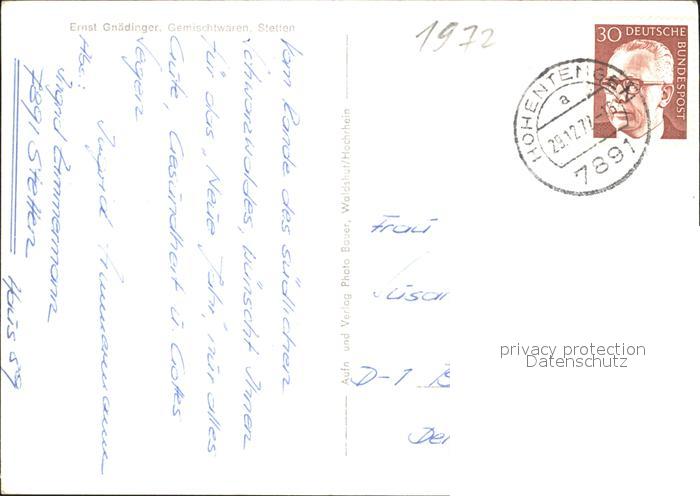 Ernst Gnädinger, Gemischtwaren, Stetten
1972
30 DEUTSCHE
BUNDESPOST
HOHENTENGEN
a
29.12.71-16
7891
Vom Rande des südlichen
Schwarzwaldes, wünscht Ihnen
für das „Neue Jahr“, nur alles
Gute, Gesundheit u. Gottes
Segen
Ingrid Zimmermann
Abs:
Ingrid Zimmermann
7891 Stetten
Haus 59
Aufn und Verlag Photo Bauer, Waldshut/Hochrhein
Frau
D-1
privacy protection
Datenschutz